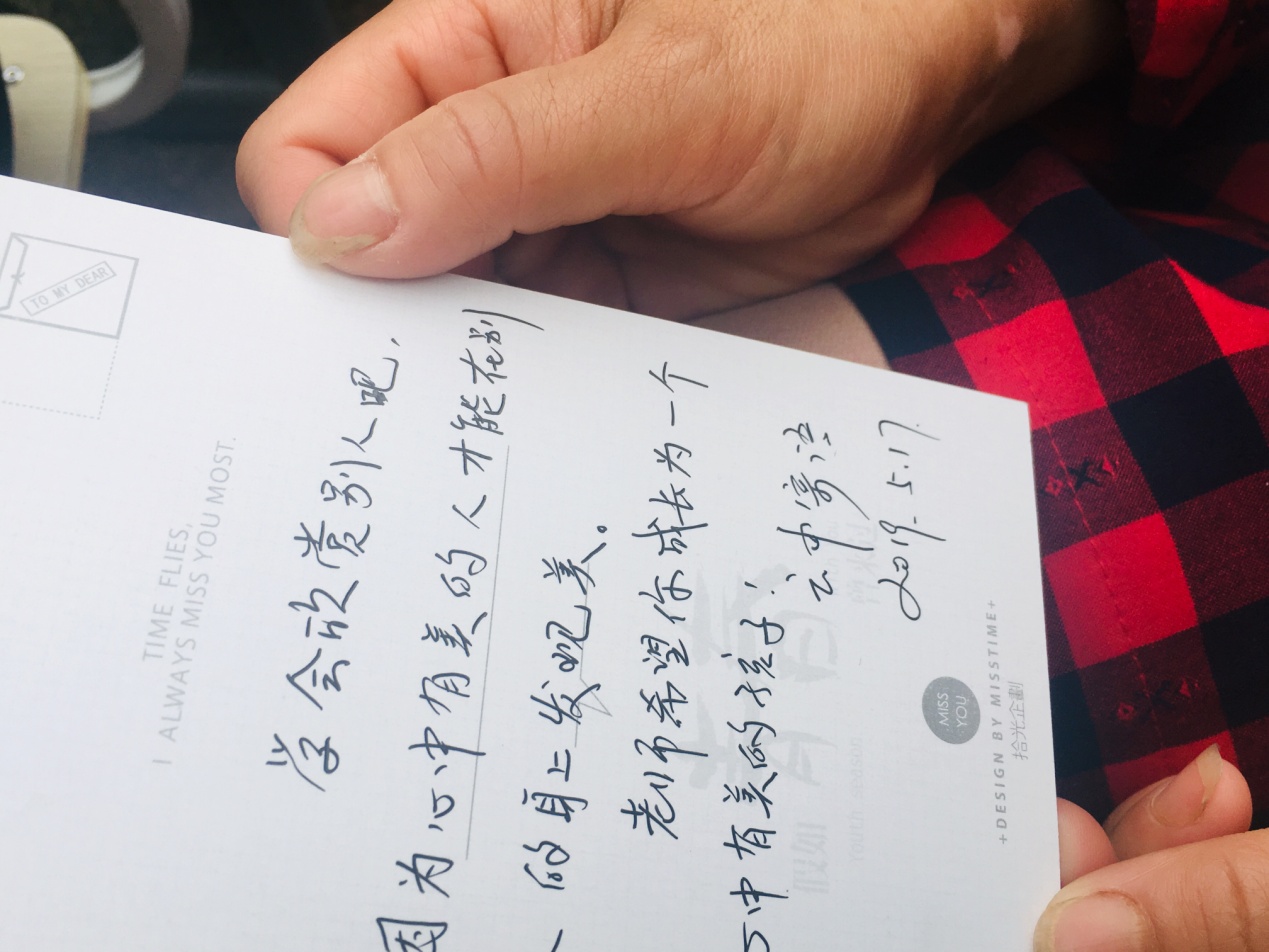 TO MY DEAR
TIME FLIES,
I ALWAYS MISS YOU MOST.
学会欣赏别人吧，
因为心中有美的人才能在别
人的身上发现美。
老师希望你成长为一个
心中有美的孩子！
云中寄语
2019.5.17.
MISS
YOU
+DESIGN BY MISSTIME+
拾光企劃